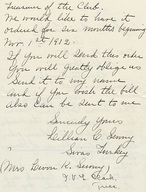 Treasurer of the Club.
We would like to have it
ordered for six months beginning
Nov. 1st 1912.
If you will send this order
you will greatly oblige us
Send it to my name
and if you wish the bill
also can be sent to me
Sincerely Yours
Lillian C. Denny
Sivas Turkey
(Mrs.